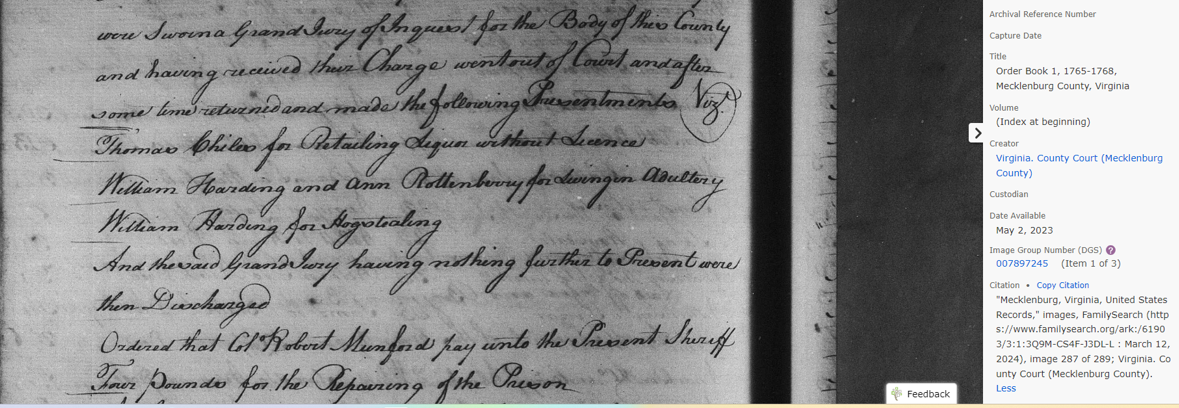 were Sworn a Grand Jury of Inquest for the Body of this County
and having received their Charge went out of Court and after
some time returned and made the following Presentments Vizt.
Thomas Chiles for Retailing Liquor without Licence
William Harding and Ann Rottenberry for Living in Adultery
William Harding for Hogstealing
And the said Grand Jury having nothing further to Present were
then Discharged
Ordered that Colo. Robert Munford pay unto the Present Sheriff
Four Pounds for the Repairing of the Prison
Archival Reference Number
Capture Date
Title
Order Book 1, 1765-1768,
Mecklenburg County, Virginia
Volume
(Index at beginning)
Creator
Virginia. County Court (Mecklenburg
County)
Custodian
Date Available
May 2, 2023
Image Group Number (DGS) ?
007897245 (Item 1 of 3)
Citation • Copy Citation
"Mecklenburg, Virginia, United States
Records," images, FamilySearch (http
s://www.familysearch.org/ark:/6190
3/3:1:3Q9M-CS4F-J3DL-L : March 12,
2024), image 287 of 289; Virginia. Co
unty Court (Mecklenburg County).
Less
Feedback